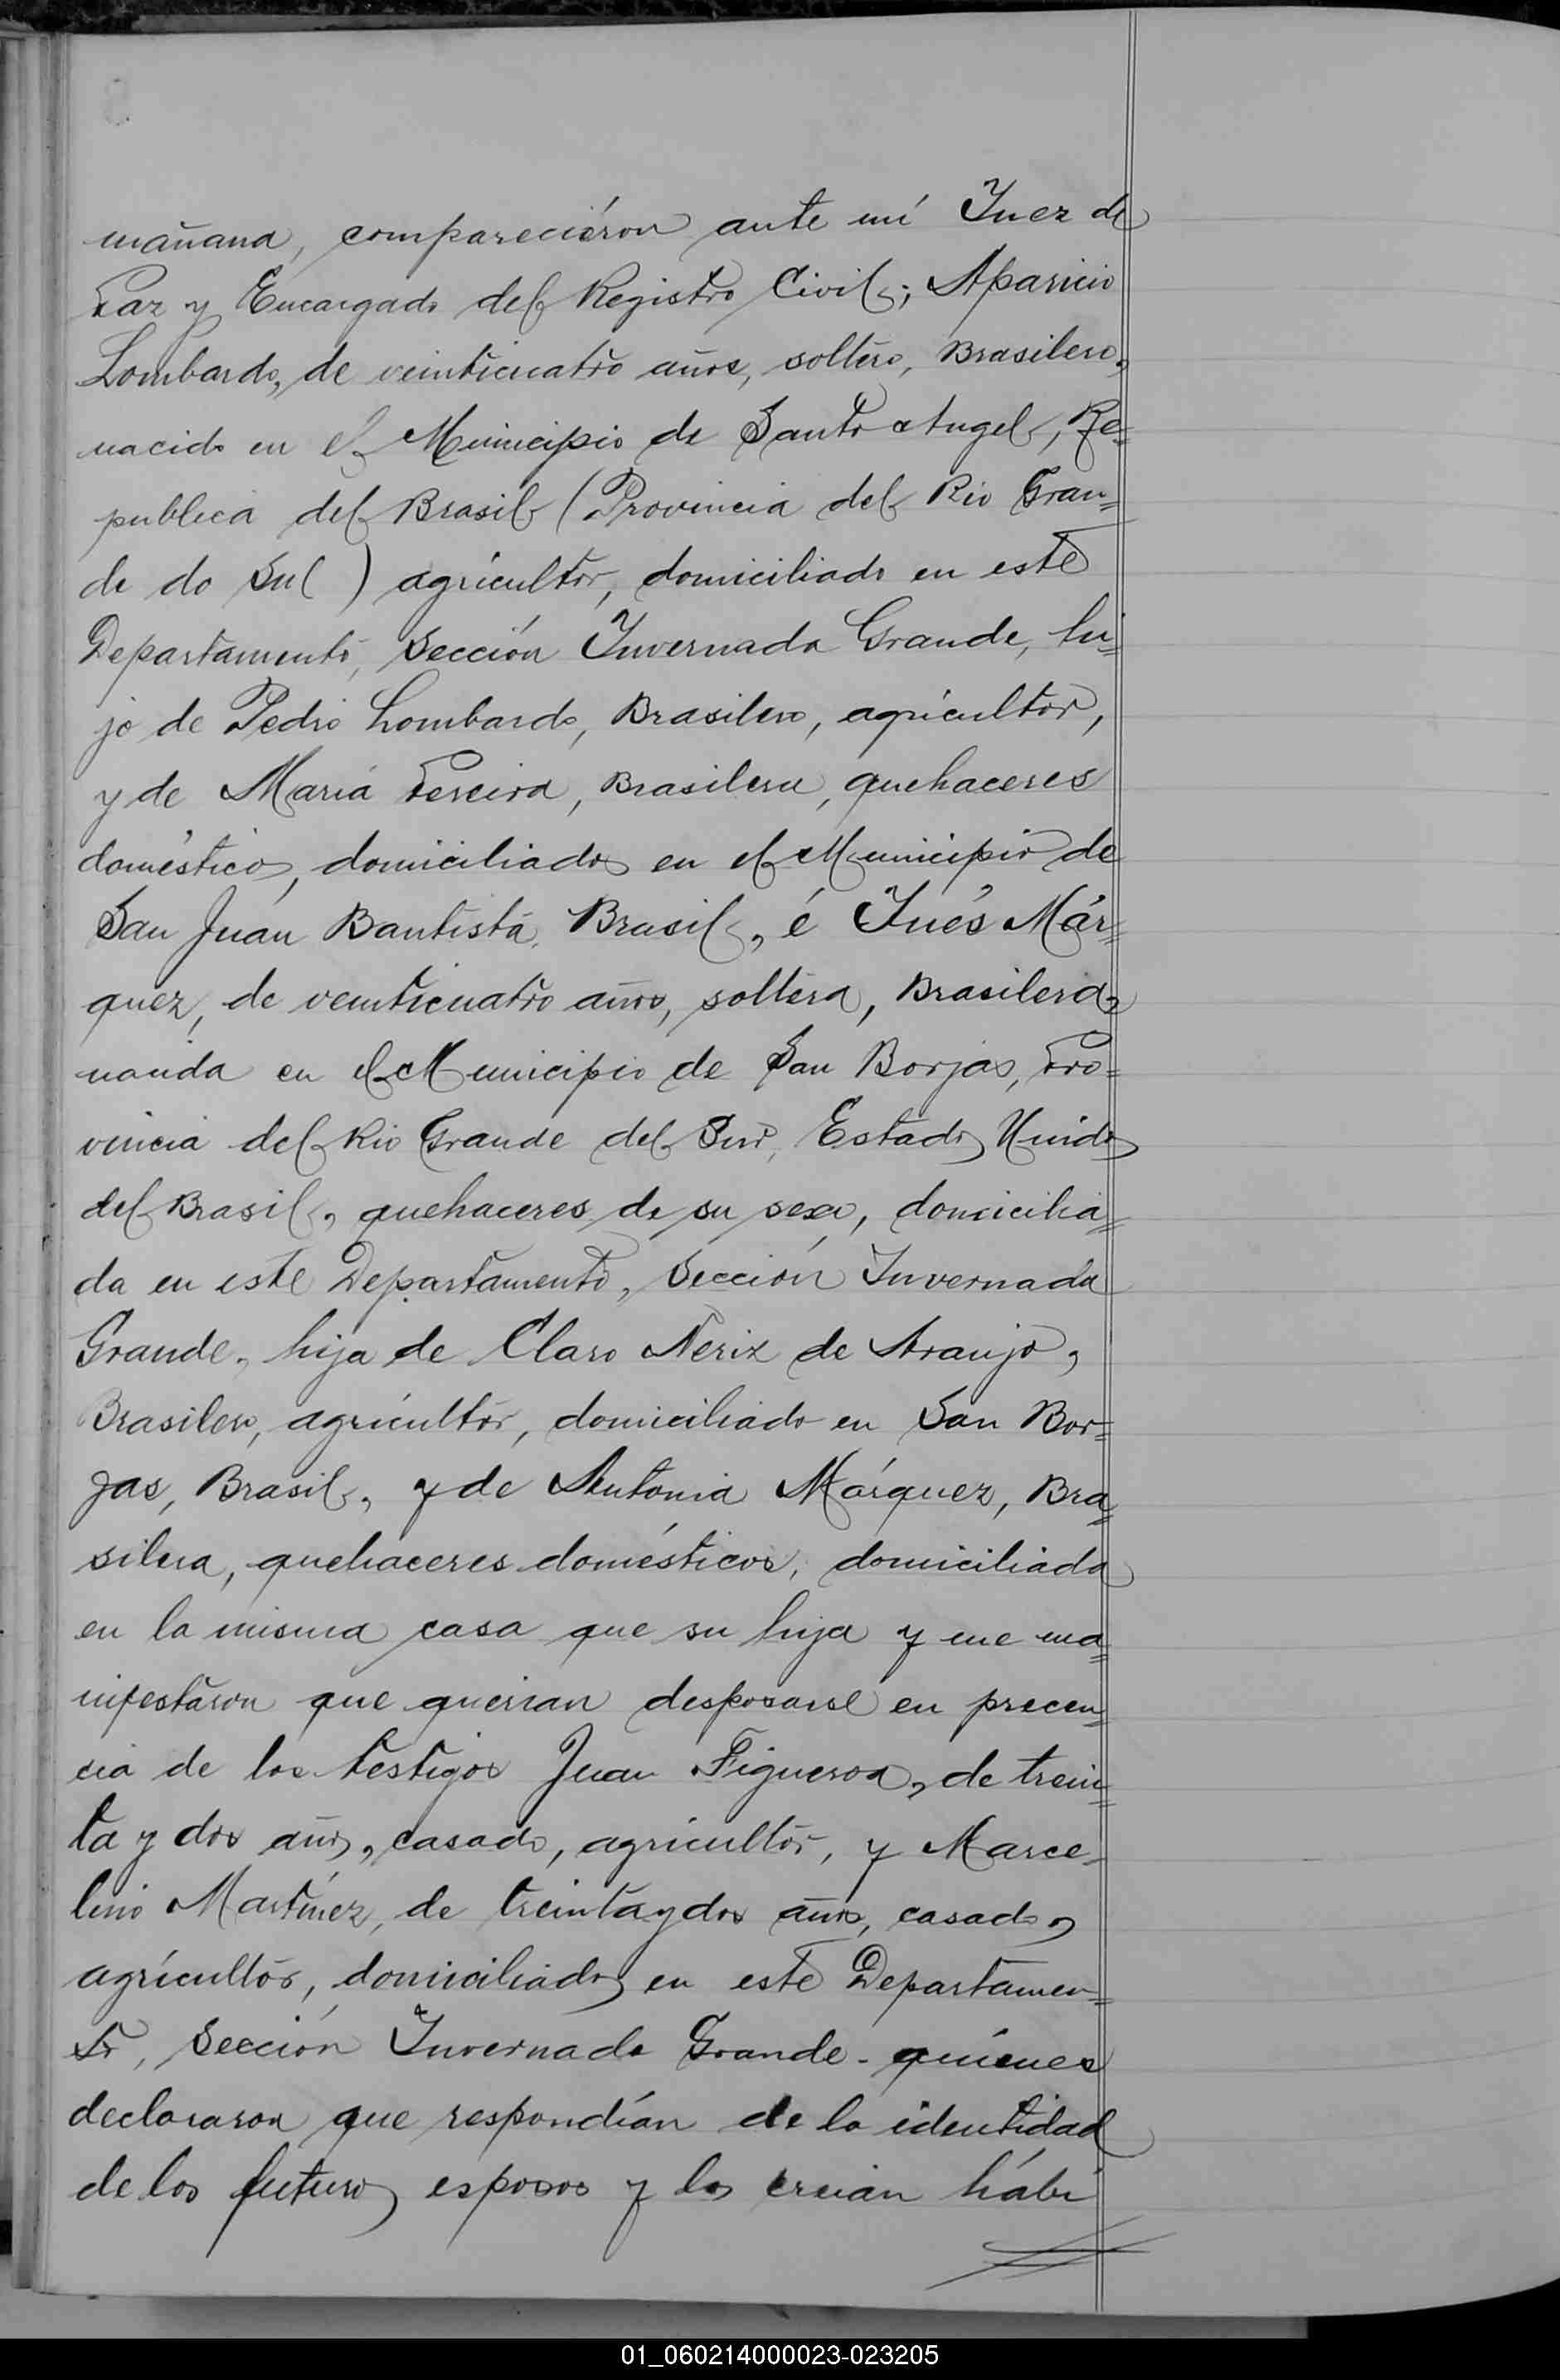 mañana, compareciéron ante mí Juez de
Paz y Encargado del Registro Civil; Aparicio
Lombardo, de veinticuatro años, soltero, Brasilero,
nacido en el Municipio de Santo Angel, Re=
publica del Brasil (Provincia del Rio Gran=
de do Sul) agricultor, domiciliado en este
Departamento, Sección Invernada Grande, hi=
jo de Pedro Lombardo, Brasilero, agricultor,
y de María Pereira, Brasilera, quehaceres
doméstico, domiciliados en el Municipio de
San Juan Bautista, Brasil, é Inés Már=
quez, de veinticuatro años, soltera, Brasilera,
nacida en el Municipio de San Borjas, Pro=
vincia del Rio Grande del Sur, Estados Unidos
del Brasil, quehaceres de su sexo, domicilia=
da en este Departamento, Sección Invernada
Grande, hija de Claro Neriz de Araujo,
Brasilero, agricultor, domiciliado en San Bor=
jas, Brasil, y de Antonia Márquez, Bra=
silera, quehaceres domésticos, domiciliada
en la misma casa que su hija y me ma=
nifestaron que querian desposarse en precen=
cia de los testigos Juan Figueroa, de trein=
ta y dos años, casado, agricultor, y Marce=
lino Martínez, de treinta y dos años, casado,
agricultor, domiciliados en este Departamen=
to, Sección Invernada Grande - quienes
declararon que respondían de la identidad
de los futuros esposos y los creian hábi
01_060214000023-023205